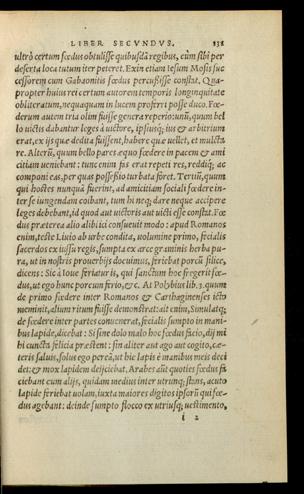 LIBER SECVNDVS. 131
ultrò certum fœdus obtulisse quibusdã regibus, cùm sibi per
deserta loca tutum iter peteret. Exin etiam Iesum Mosis suc
cessorem cum Gabaonitis fœdus percussisse constat. Qua-
propter huius rei certum autorem temporis longinquitate
obliteratum, nequaquam in lucem proferri posse duco. Fœ-
derum autem tria olim fuisse genera reperio: unũ, quum bel
lo uictis dabantur leges à uictore, ipsiusq; ius & arbitrium
erat, ex ijs quæ dedita fuissent, habere quæ uellet, et mulcta
re. Alterũ, quum bello pares æquo fœdere in pacem & ami
citiam ueniebant: tunc enim ius erat repeti res, reddiq; ac
componi eas, per quas possessio turbata fôret. Tertiũ, quum
qui hostes nunquã fuerint, ad amicitiam sociali fœdere in-
ter se iungendam coibant, tum hi neq; dare neque accipere
leges debebant, id quod aut uictoris aut uicti esse constat. Fœ
dus præterea alio alibi ici consueuit modo: apud Romanos
enim, teste Liuio ab urbe condita, uolumine primo, fecialis
sacerdos ex iussu regis, sumpta ex arce graminis herba pu-
ra, ut in nostris prouerbijs docuimus, feriebat porcũ silice,
dicens: Sic à Ioue feriatur is, qui sanctum hoc fregerit fœ-
dus, ut ego hunc porcum ferio, &c. At Polybius lib. 3. quum
de primo fœdere inter Romanos & Carthaginenses icto
meminit, alium ritum fuisse demonstrat: ait enim, Simulatq;
de fœdere inter partes conuenerat, fecialis sumpto in mani-
bus lapide, dicebat: Si sine dolo malo hoc fœdus facio, dij mi
hi cuncta felicia præstent: sin aliter aut ago aut cogito, cæ-
teris saluis, solus ego pereã, ut hic lapis è manibus meis deci
det: & mox lapidem deijciebat. Arabes aũt quoties fœdus fa
ciebant cum alijs, quidam medius inter utrunq; stans, acuto
lapide feriebat uolam, iuxta maiores digitos ipsorũ qui fœ-
dus agebant: deinde sumpto flocco ex utriusq; uestimento,
i 2